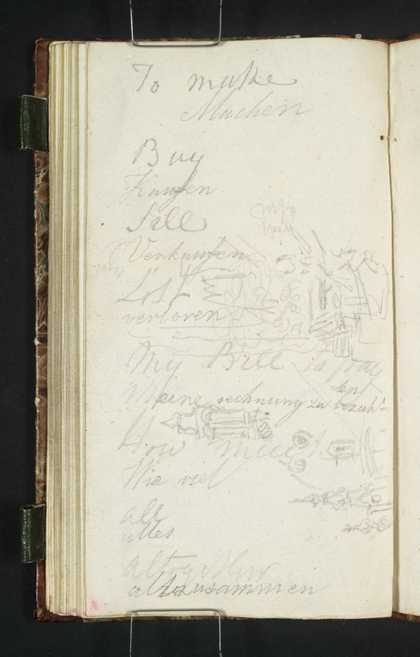 To make
Machen
Buy
Kaufen
Sell
Verkaufen
Lost
verloren
My Bill is
Meine rechnung zu bezahl
en
How much
Wie viel
all
alles
altogether
alzusammen